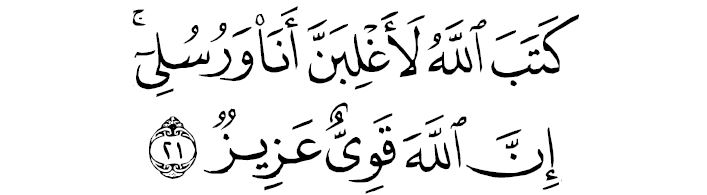 كَتَبَ ٱللَّهُ لَأَغْلِبَنَّ أَنَا۠ وَرُسُلِىٓ ۚ
إِنَّ ٱللَّهَ قَوِىٌّ عَزِيزٌ ٢١